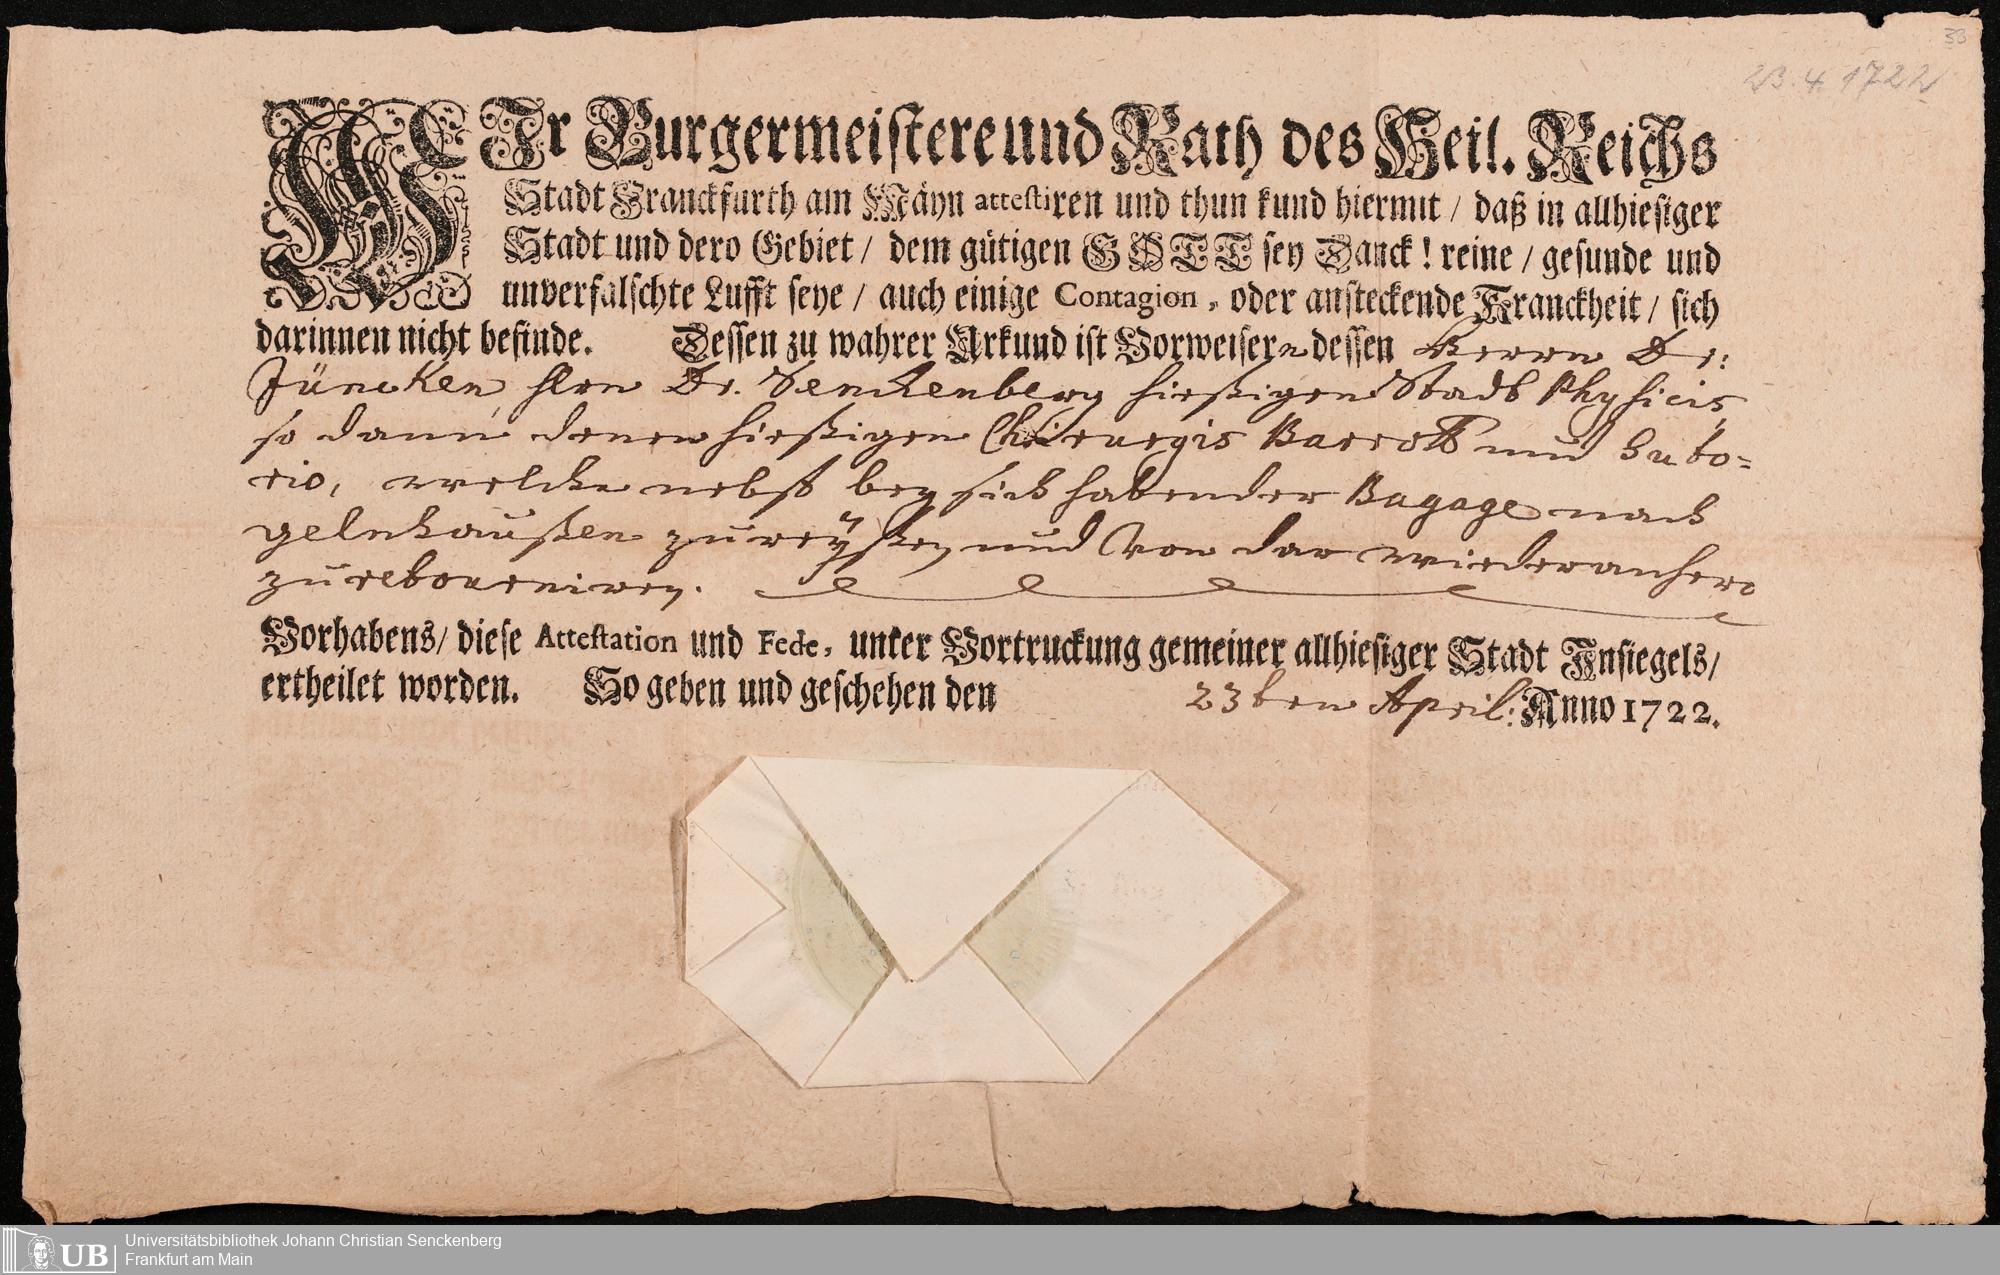 33
23.4.1722
WIr Burgermeistere und Rath des Heil. Reichs
Stadt Franckfurth am Mäyn attestiren und thun kund hiermit / daß in allhiesiger
Stadt und dero Gebiet / dem gütigen GOTT sey Danck! reine / gesunde und
unverfälschte Lufft seye / auch einige Contagion, oder ansteckende Kranckheit / sich
darinnen nicht befinde. Dessen zu wahrer Urkund ist Vorweisern dessen Herrn Dr:
Jüncken, Hrn Dr. Senckenberg hießigen Stadt Physicis,
so dann denen hießigen Chirurgis Barroth und Suto=
rio, welche nebst bey sich habender Bagage nach
gelnhaußen zu reyßen und von dar wieder anhero
zu retourniren.
Vorhabens / diese Attestation und Fede, unter Vortruckung gemeiner allhiesiger Stadt Insiegels /
ertheilet worden. So geben und geschehen den 23ten April: Anno 1722.
UB Universitätsbibliothek Johann Christian Senckenberg
Frankfurt am Main